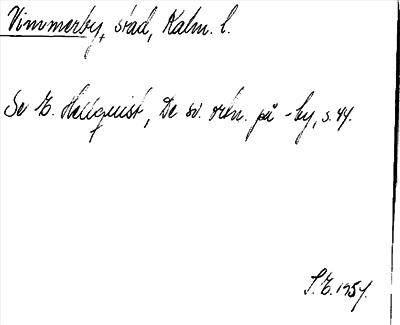 Vimmerby, stad, Kalm. l.
Se E. Hellquist, De sv. ortn. på -by, s. 44.
S.E. 1957.